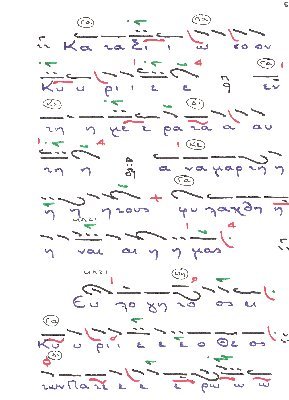 Κα τα ξι ι ω σο ον
Κυ υ ρι ι ε ε εν
τη η με ε ρα τα α αυ
τη η α να μαρ τη η
η η η τους φυ λα χθη η
η ναι αι η η μας
Ευ λο γη το ος ει
Κυ υ ρι ι ε ε ε ο Θε ος
των Πα τε ε ε ε ρω ω ω